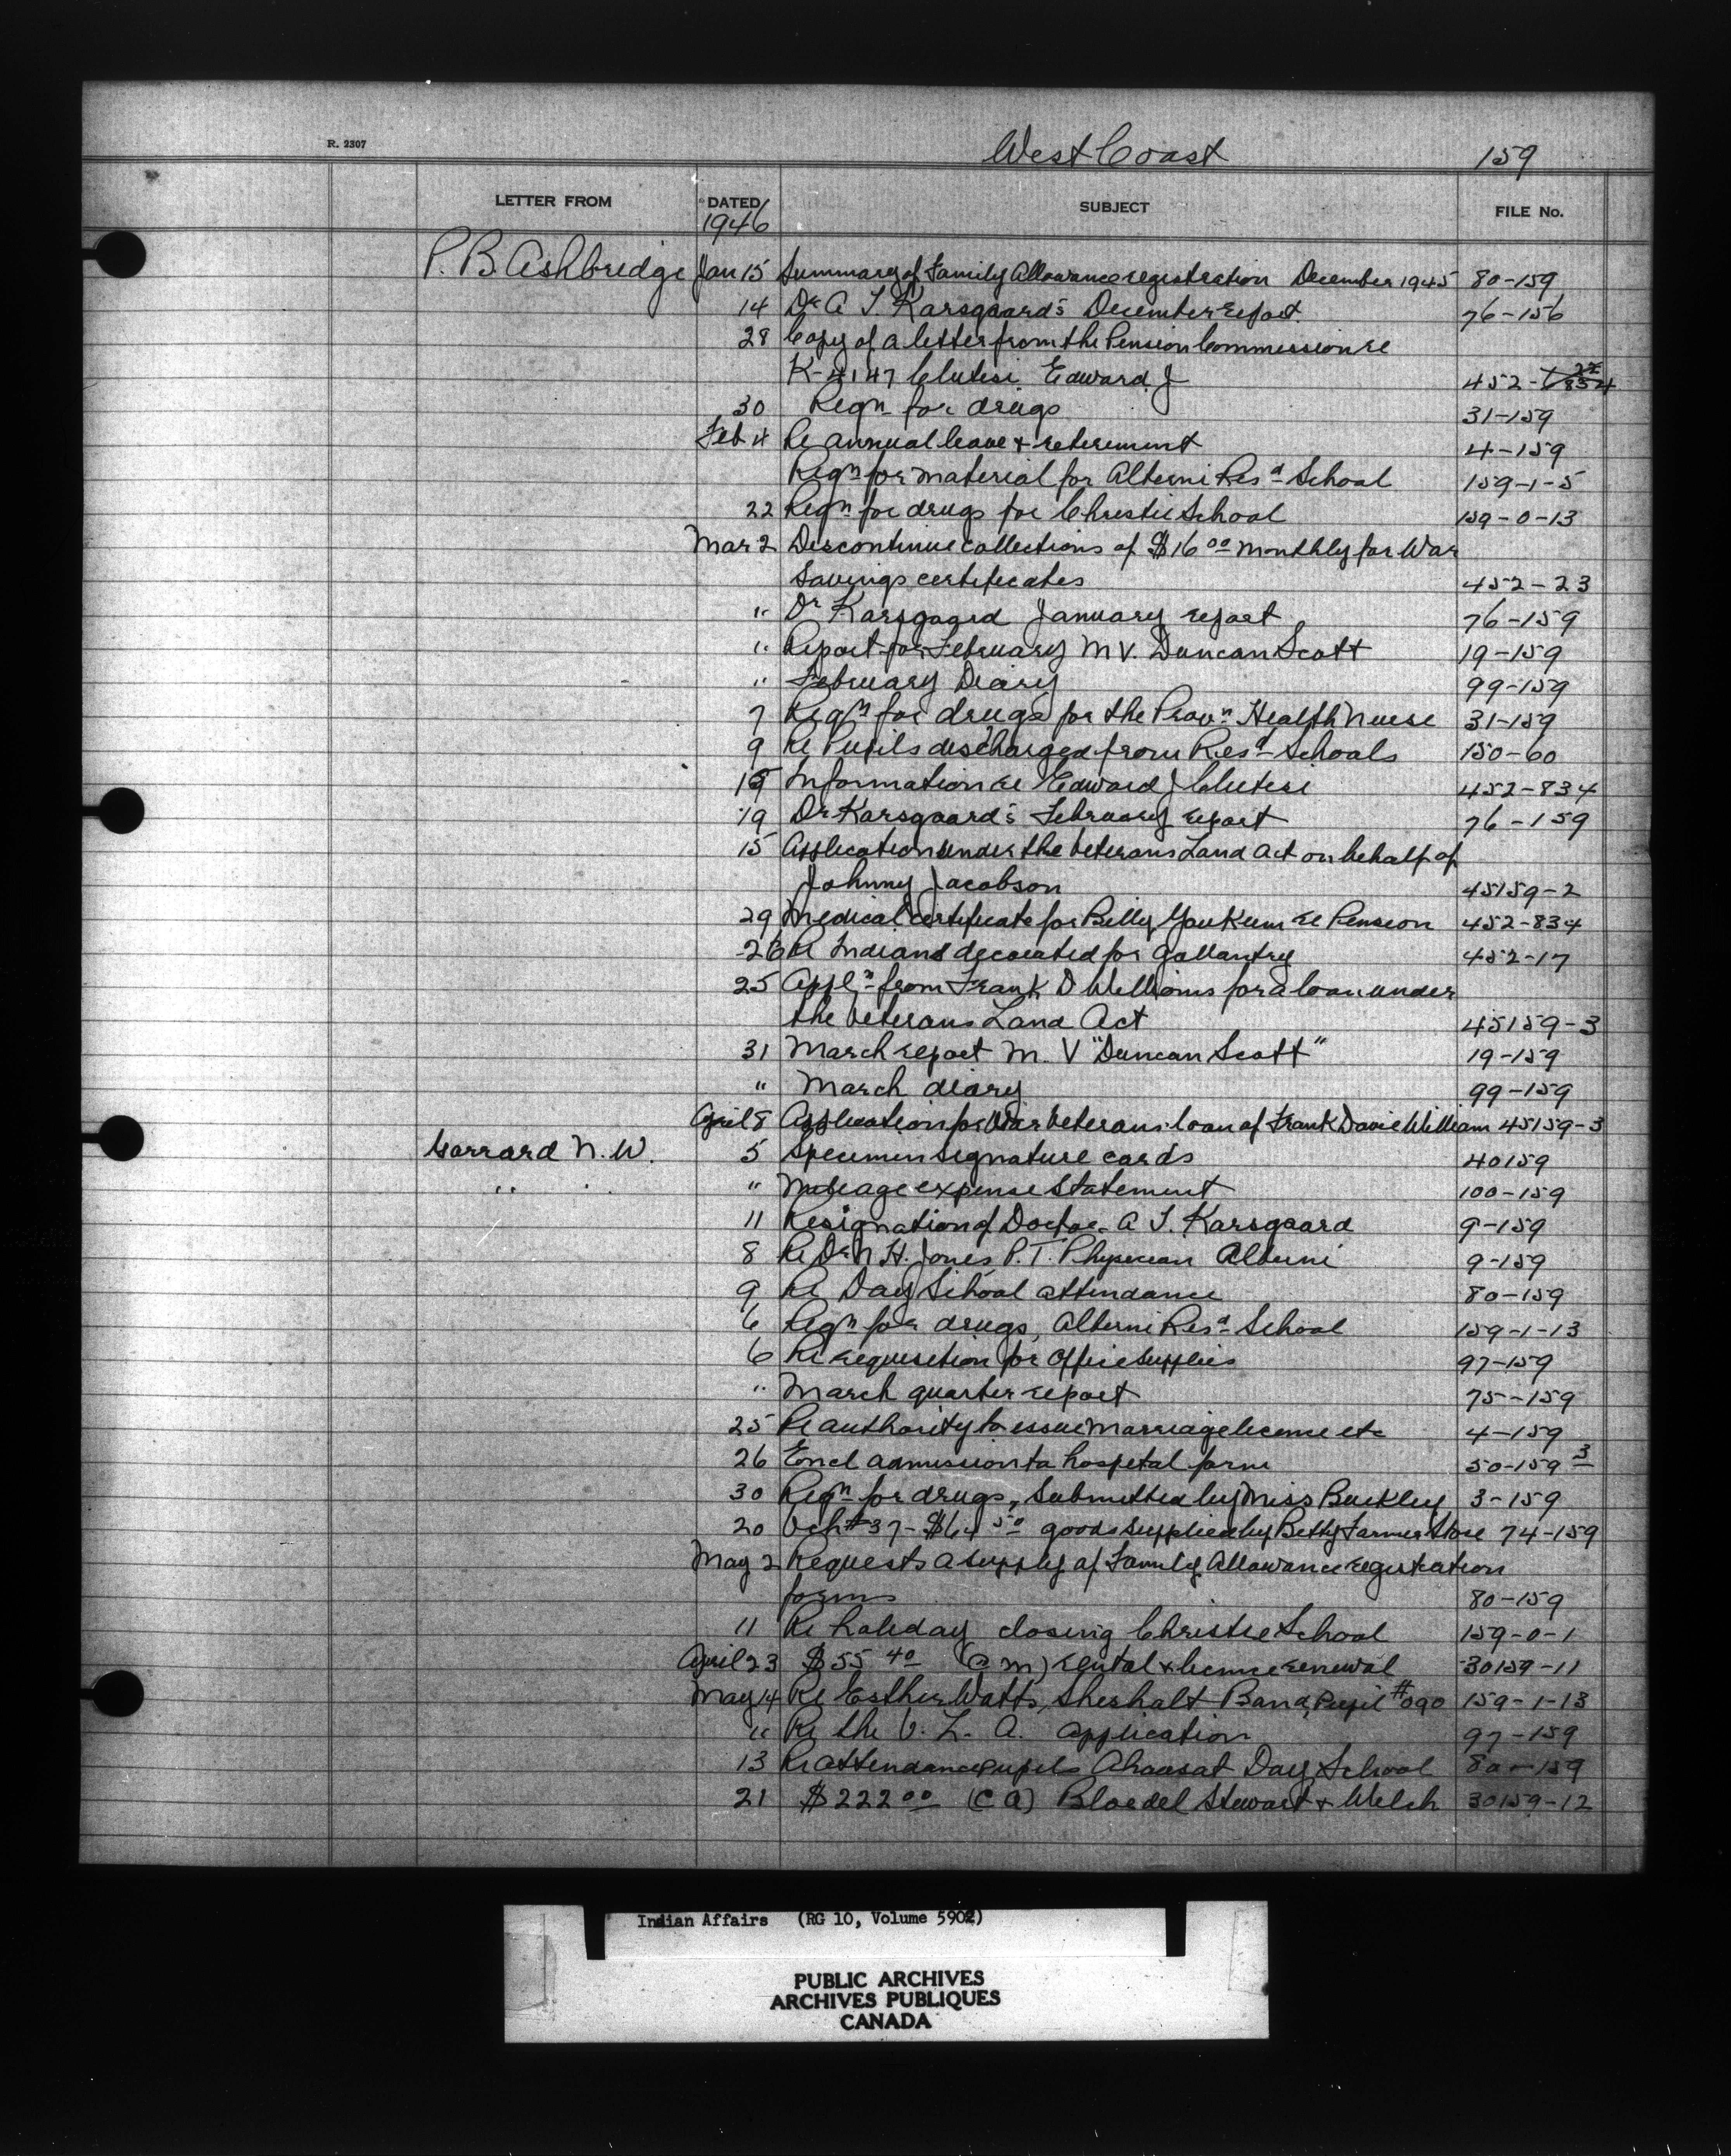 R. 2307
West Coast 159
LETTER FROM DATED SUBJECT FILE No.
1946
P. B. Ashbridge Jan 15 Summary of Family Allowance registration December 1945 80-159
14 Dr A T Karsgaard's December report 76-156
28 Copy of a letter from the Pension Commission re
K-4147 Clutesi Edward J 452-
30 Reqn for drugs 31-159
Feb 4 Re annual leave & retirement 4-159
Reqn for material for Alberni Resd School 159-1-5
22 Reqn for drugs for Christie School 159-0-13
Mar 2 Discontinue collections of $16 00 monthly for War
Savings certificates 452-23
" Dr Karsgaard January report 76-159
" Report for February M V. Duncan Scott 19-159
" February Diary 99-159
7 Reqn for drugs for the Provn Health Nurse 31-159
9 Re Pupils discharged from Resd Schools 150-60
15 Information re Edward J Clutesi 452-834
19 Dr Karsgaard's February report 76-159
15 Application under the Veterans Land Act on behalf of
Johnny Jacobson 45159-2
29 Medical certificate for Billy Youkum re Pension 452-834
26 Re Indians decorated for gallantry 452-17
25 Appln from Frank D Williams for a loan under
the Veterans Land Act 45159-3
31 March report M. V "Duncan Scott" 19-159
" March diary 99-159
April 8 Application for War Veterans loan of Frank David William 45159-3
Garrard N. W. 5 Specimen signature cards 40159
" " " Mileage expense statement 100-159
11 Resignation of Doctor A T. Karsgaard 9-159
8 Re Dr N H. Jones P. T. Physician Alberni 9-159
9 Re Day School attendance 80-159
6 Reqn for drugs, Alberni Resd School 159-1-13
6 Re requisition for office supplies 97-159
" March quarter report 75-159
25 Re authority to issue marriage license etc 4-159
26 Encl admission to hospital form 50-159 3
30 Reqn for drugs, submitted by Miss Buckley 3-159
20 Vch #37-$64 50 goods supplied by Betty Farmer Store 74-159
May 2 Requests a supply of Family Allowance registration
forms 80-159
11 Re holiday closing Christie School 159-0-1
April 23 $55 40 rental & license renewal 30159-11
May 14 Re Esther Watts, Sheshalt Band, Pupil #090 159-1-13
" Re the V. L. A. application 97-159
13 Re attendance pupils Ahousat Day School 80-159
21 $222 00 (C A) Bloedel Stewart & Welch 30159-12
Indian Affairs (RG 10, Volume 5902)
PUBLIC ARCHIVES
ARCHIVES PUBLIQUES
CANADA